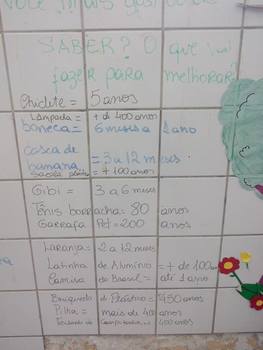 você mais gostou de
SABER? O que vai
fazer para melhorar?
Chiclete = 5 anos
Lâmpada = + di 400 anos
boneca = 6 meses a 1 ano
casca de
banana = 3 a 12 meses
Sacola = + 100 anos
Gibi = 3 a 6 meses
Tênis borracha = 80 anos
Garrafa Pet = 200 anos
Laranja = 2 a 12 meses
Latinha de Alumínio = + de 100
Camisa do Brasil = até 1 ano
Brinquedo d Plástico = 450 anos
Pilha = mais de 400 anos
400 anos